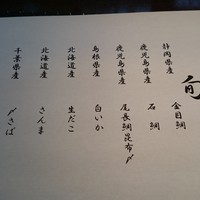 旬
静岡県産 金目鯛
鹿児島県産 石鯛
鹿児島県産 尾長鯛昆布〆
島根県産 白いか
北海道産 生だこ
北海道産 さんま
千葉県産 〆さば